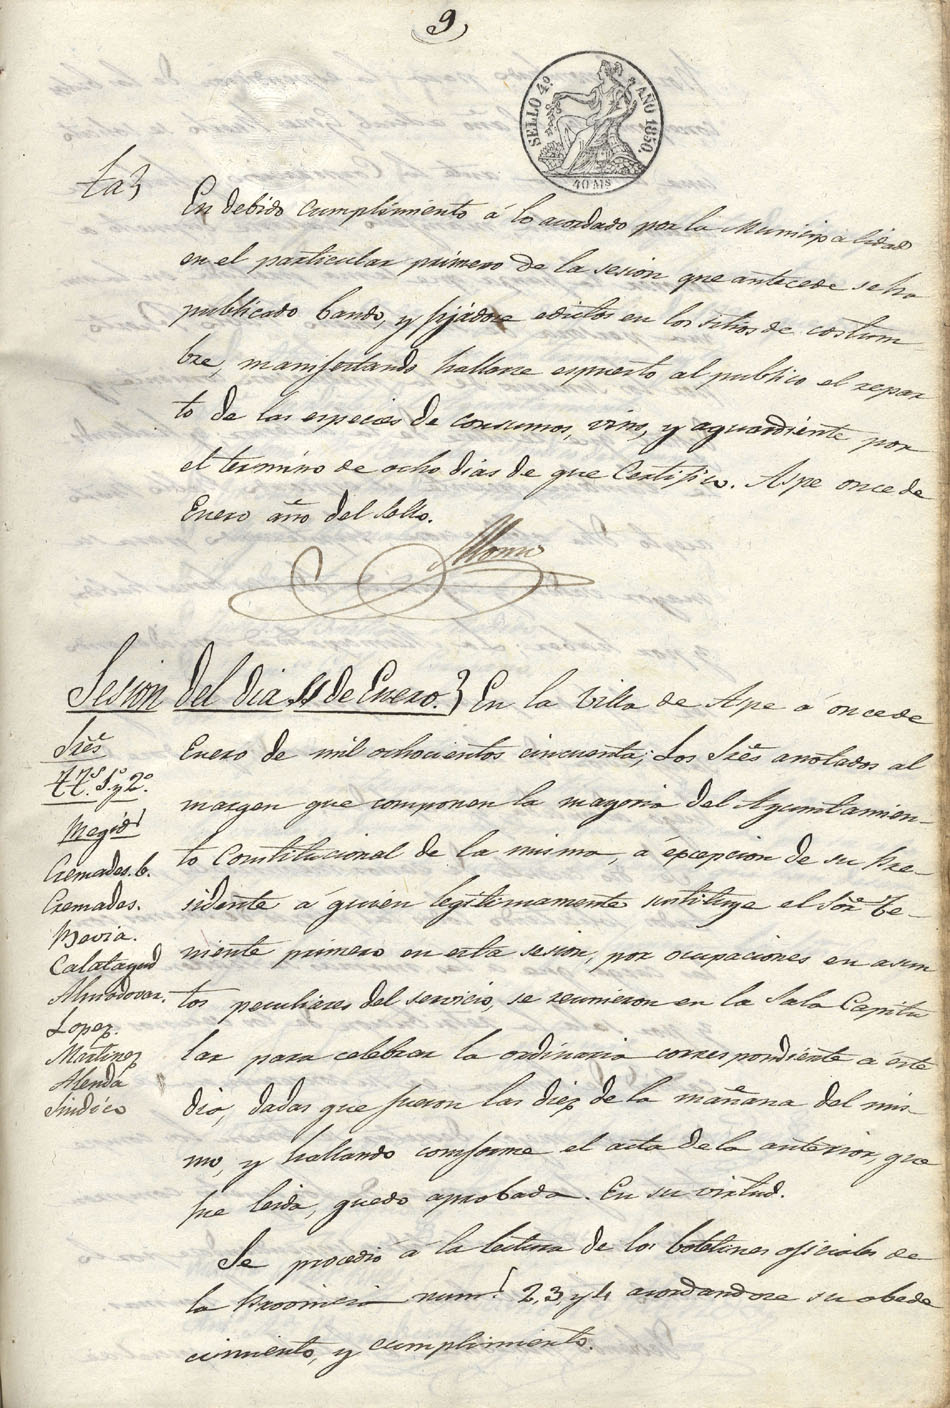 9
SELLO 4º AÑO 1850.
40 MS
En debido cumplimiento á lo acordado por la Municipalidad
en el particular primero de la sesion que antecede se ha
publicado bando, y fijadose edictos en los sitios de costum
bre, manifestando hallarse espuesto al publico el repar
to de las especies de consumos, vino, y aguardiente por
el termino de ocho dias de que Certifico. Aspe once de
Enero año del sello.
Sesion del dia 11 de Enero. } En la Villa de Aspe á once de
Sres
Enero de mil ochocientos cincuenta; Los Sres anotados al
TTs. 1º y 2º
margen que componen la mayoria del Ayuntamien-
Megias
to Constitucional de la misma, á éxcepcion de su Pre-
Cremades. b.
sidente á quien legitimamente sustituye el Sor. Te-
Cremades.
Pavia.
niente primero en esta sesion, por ocupaciones en asun
Calatayud
Almodovar.
tos peculiares del servicio, se reunieron en la Sala Capitu
Lopez.
Martinez
lar para celebrar la ordinaria correspondiente a éste
Alenda
Sindico
dia, dadas que fueron las diez de la mañana del mis-
mo, y hallando comforme el acta de la anterior, que
fue leida, quedo aprobada. En su virtud.
Se procedió á la lectura de los boletines oficiales de
la Provincia nums. 2, 3, y 4 acordandose su obede
cimiento, y cumplimiento.